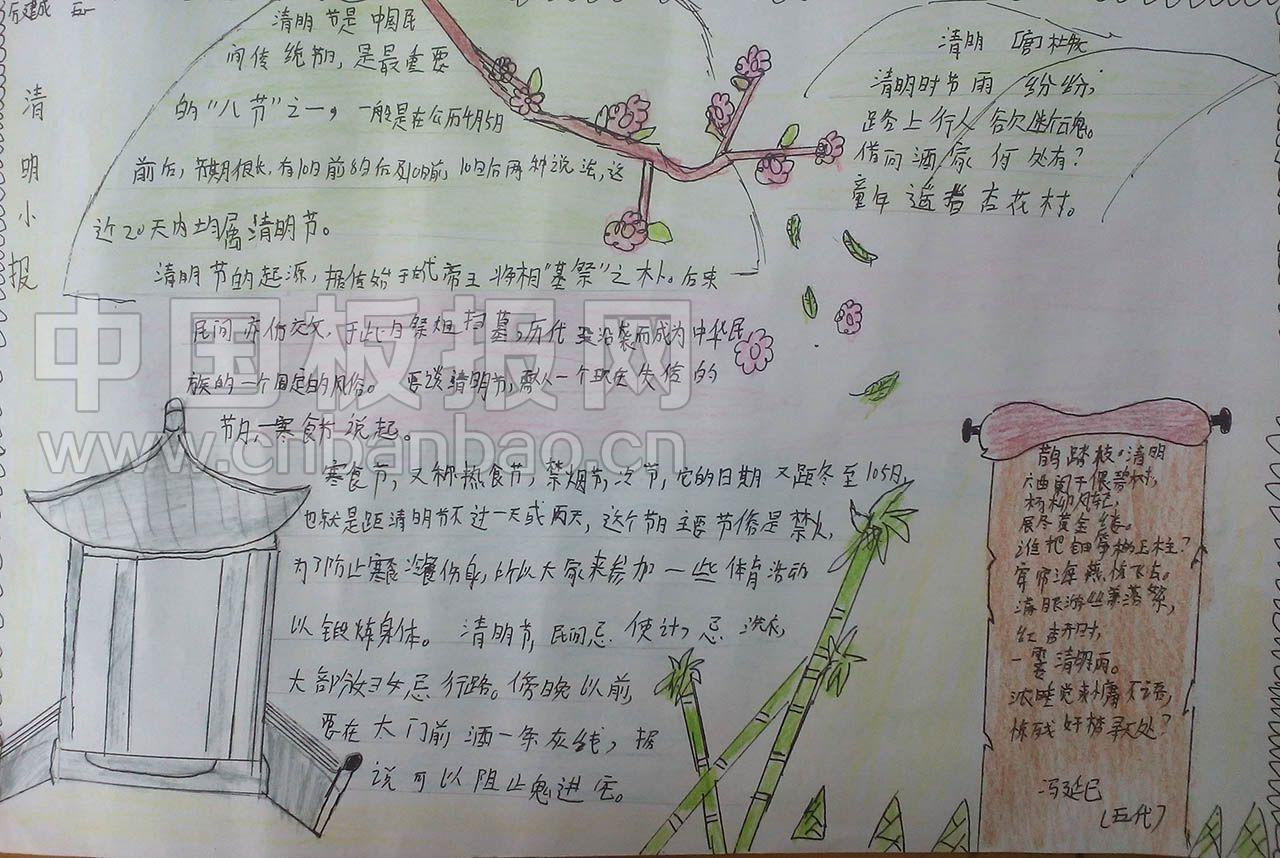 清明小报
清明节是中国民
间传统节日,是最重要
的"八节"之一,一般是在公历4月5日
前后,节期很长,有10日前8日后及10日前10日后两种说法,这
近20天内均属清明节。
清明节的起源,据传始于古代帝王将相"墓祭"之礼。后来
民间亦仿效,于此日祭祖扫墓,历代沿袭而成为中华民
族的一个固定的风俗。要谈清明节,需从一个现已失传的
节日,寒食节说起。
寒食节,又称熟食节,禁烟节,冷节,它的日期又距冬至105日,
也就是距清明节不过一天或两天,这个节日主要节俗是禁火,
为了防止寒食冷餐伤身,所以大家来参加一些体育活动
以锻炼身体。清明节,民间忌使针,忌洗衣,
大部分妇女忌行路。傍晚以前,
要在大门前洒一条灰线,据
说可以阻止鬼进宅。
清明 [唐]杜牧
清明时节雨纷纷,
路上行人欲断魂。
借问酒家何处有?
童年遥 杏花村。
鹊踏枝·清明
六曲阑干偎碧树,
杨柳风轻,
展尽黄金缕。
谁把钿筝移玉柱?
穿帘海燕 飞去。
满眼游丝兼落絮,
红杏开时,
一霎清明雨。
浓睡觉来 不语,
惊残好梦寻 处?
冯延巳
(五代)
中国板报网
www.cnbanbao.cn